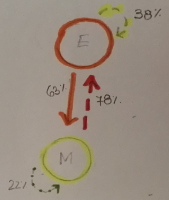 38%
E
63%
78%
M
22%